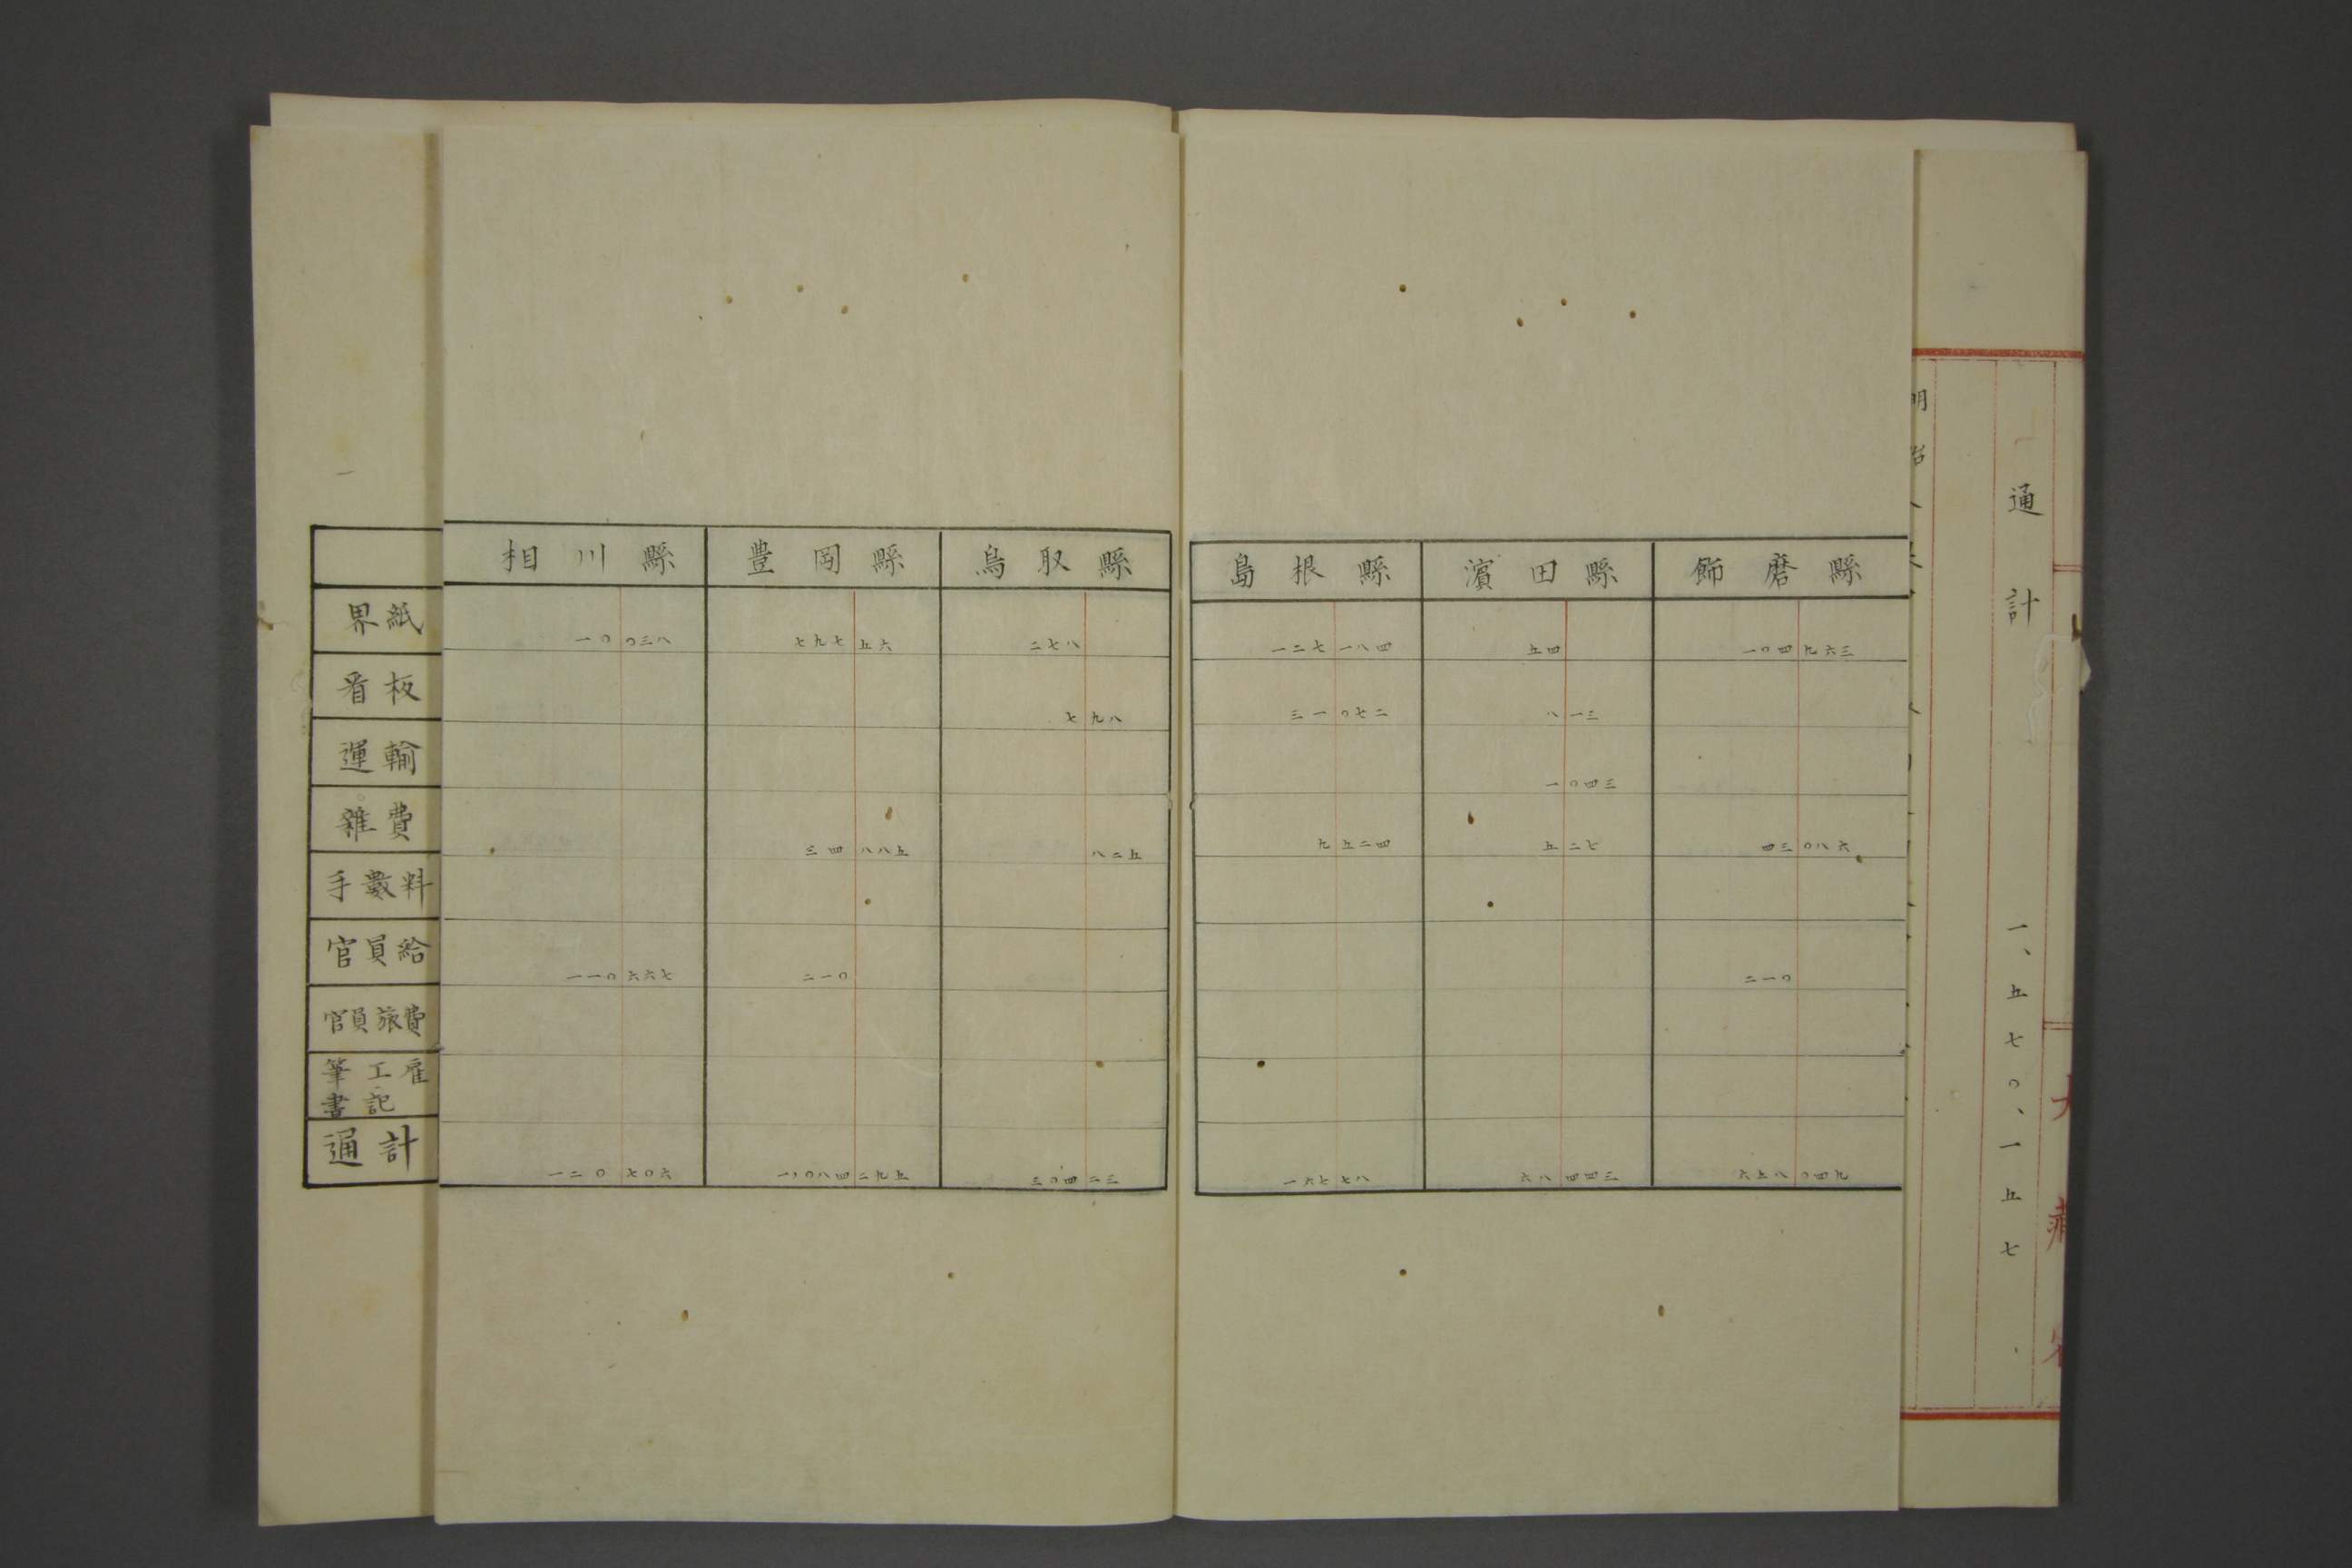 相川縣 豊岡縣 鳥取縣 島根縣 濱田縣 飾磨縣
界紙 一〇〇三八 七九七五六 二七八 一二七一八四 五四 一〇四九六三
看板 七九八 三一〇七二 八一三
運輸 一〇四三
雜費 三四八八五 八二五 九五二四 五二七 四三〇八六
手數料
官員給 一一〇六六七 二一〇 二一〇
官員旅費
筆工雇
書記
通計 一二〇七〇六 一、〇八四二九五 三〇四二三 一六七七八 六八四四三 六五八〇四九
通計 一、五七〇、一五七